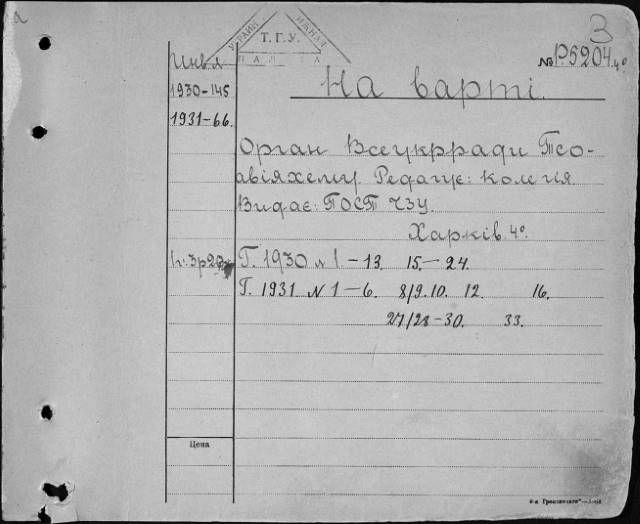 3
УКРАЇН Т.Г.У. КНИЖНАЯ
ПАЛАТА
№ Р.5204.4º
Инвл
1930-145
1931-66.
На варті.
Орган Всеукрради Тсо-
авіяхему. Редагує: колегія.
Видає: ПОСТ УЗУ.
Харків. 4º.
Г. 1930 № 1-13. 15.-24.
Г. 1931 № 1-6. 8/9.10. 12. 16.
27/28-30. 33.
Цена